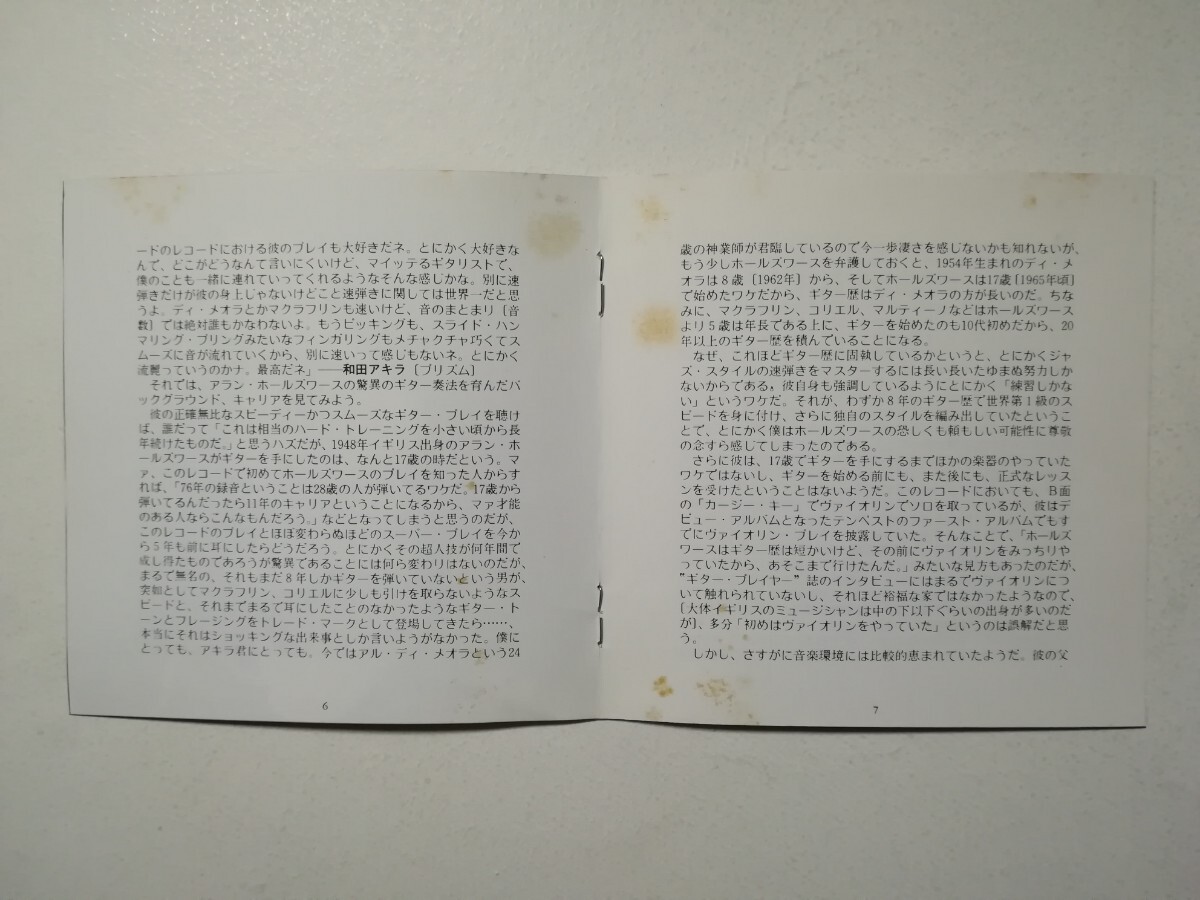 ードのレコードにおける彼のプレイも大好きだネ。とにかく大好きな
んで、どこがどうなんて言いにくいけど、マイッテるギタリストで、
僕のことも一緒に連れていってくれるようなそんな感じかな。別に速
弾きだけが彼の身上じゃないけどこと速弾きに関しては世界一だと思
うよ。ディ・メオラとかマクラフリンも速いけど、音のまとまり〔音
数〕では絶対誰もかなわないよ。もうピッキングも、スライド・ハン
マリング・プリングみたいなフィンガリングもメチャクチャ巧くてス
ムーズに音が流れていくから、別に速いって感じもないネ。とにかく
流麗っていうのかナ。最高だネ」──和田アキラ〔プリズム〕
それでは、アラン・ホールズワースの驚異のギター奏法を育んだバ
ックグラウンド、キャリアを見てみよう。
彼の正確無比なスピーディーかつスムーズなギター・プレイを聴け
ば、誰だって「これは相当のハード・トレーニングを小さい頃から長
年続けたものだ。」と思うハズだが、1948年イギリス出身のアラン・ホ
ールズワースがギターを手にしたのは、なんと17歳の時だという。マ
ァ、このレコードで初めてホールズワースのプレイを知った人からす
れば、「76年の録音ということは28歳の人が弾いてるワケだ。17歳から
弾いてるんだったら11年のキャリアということになるから、マァ才能
のある人ならこんなもんだろう。」などとなってしまうと思うのだが、
このレコードのプレイとほぼ変わらぬほどのスーパー・プレイを今か
ら5年も前に耳にしたらどうだろう。とにかくその超人技が何年間で
成し得たものであろうが驚異であることには何ら変わりはないのだが、
まるで無名の、それもまだ8年しかギターを弾いていないという男が、
突如としてマクラフリン、コリエルに少しも引けを取らないようなス
ピードと、それまでまるで耳にしたことのなかったようなギター・ト
ーンとフレージングをトレード・マークとして登場してきたら……、
本当にそれはショッキングな出来事としか言いようがなかった。僕に
とっても、アキラ君にとっても。今ではアル・ディ・メオラという24
6
歳の神業師が君臨しているので今一歩凄さを感じないかも知れないが、
もう少しホールズワースを弁護しておくと、1954年生まれのディ・メ
オラは8歳〔1962年〕から、そしてホールズワースは17歳〔1965年頃〕
で始めたワケだから、ギター歴はディ・メオラの方が長いのだ。ちな
みに、マクラフリン、コリエル、マルティーノなどはホールズワース
より5歳は年長である上に、ギターを始めたのも10代初めだから、20
年以上のギター歴を積んでいることになる。
なぜ、これほどギター歴に固執しているかというと、とにかくジャ
ズ・スタイルの速弾きをマスターするには長い長いたゆまぬ努力しか
ないからである。彼自身も強調しているようにとにかく「練習しかな
い」というワケだ。それが、わずか8年のギター歴で世界第1級のス
ピードを身に付け、さらに独自のスタイルを編み出していたというこ
とで、とにかく僕はホールズワースの恐しくも頼もしい可能性に尊敬
の念すら感じてしまったのである。
さらに彼は、17歳でギターを手にするまでほかの楽器のやっていた
ワケではないし、ギターを始める前にも、また後にも、正式なレッス
ンを受けたということはないようだ。このレコードにおいても、B面
の「カージー・キー」でヴァイオリンでソロを取っているが、彼はデ
ビュー・アルバムとなったテンペストのファースト・アルバムでもす
でにヴァイオリン・プレイを披露していた。そんなことで、「ホールズ
ワースはギター歴は短かいけど、その前にヴァイオリンをみっちりや
っていたから、あそこまで行けたんだ。」みたいな見方もあったのだが、
"ギター・プレイヤー" 誌のインタビューにはまるでヴァイオリンにつ
いて触れられていないし、それほど裕福な家ではなかったようなので、
〔大体イギリスのミュージシャンは中の下以下ぐらいの出身が多いのだ
が〕、多分「初めはヴァイオリンをやっていた」というのは誤解だと思
う。
しかし、さすがに音楽環境には比較的恵まれていたようだ。彼の父
7